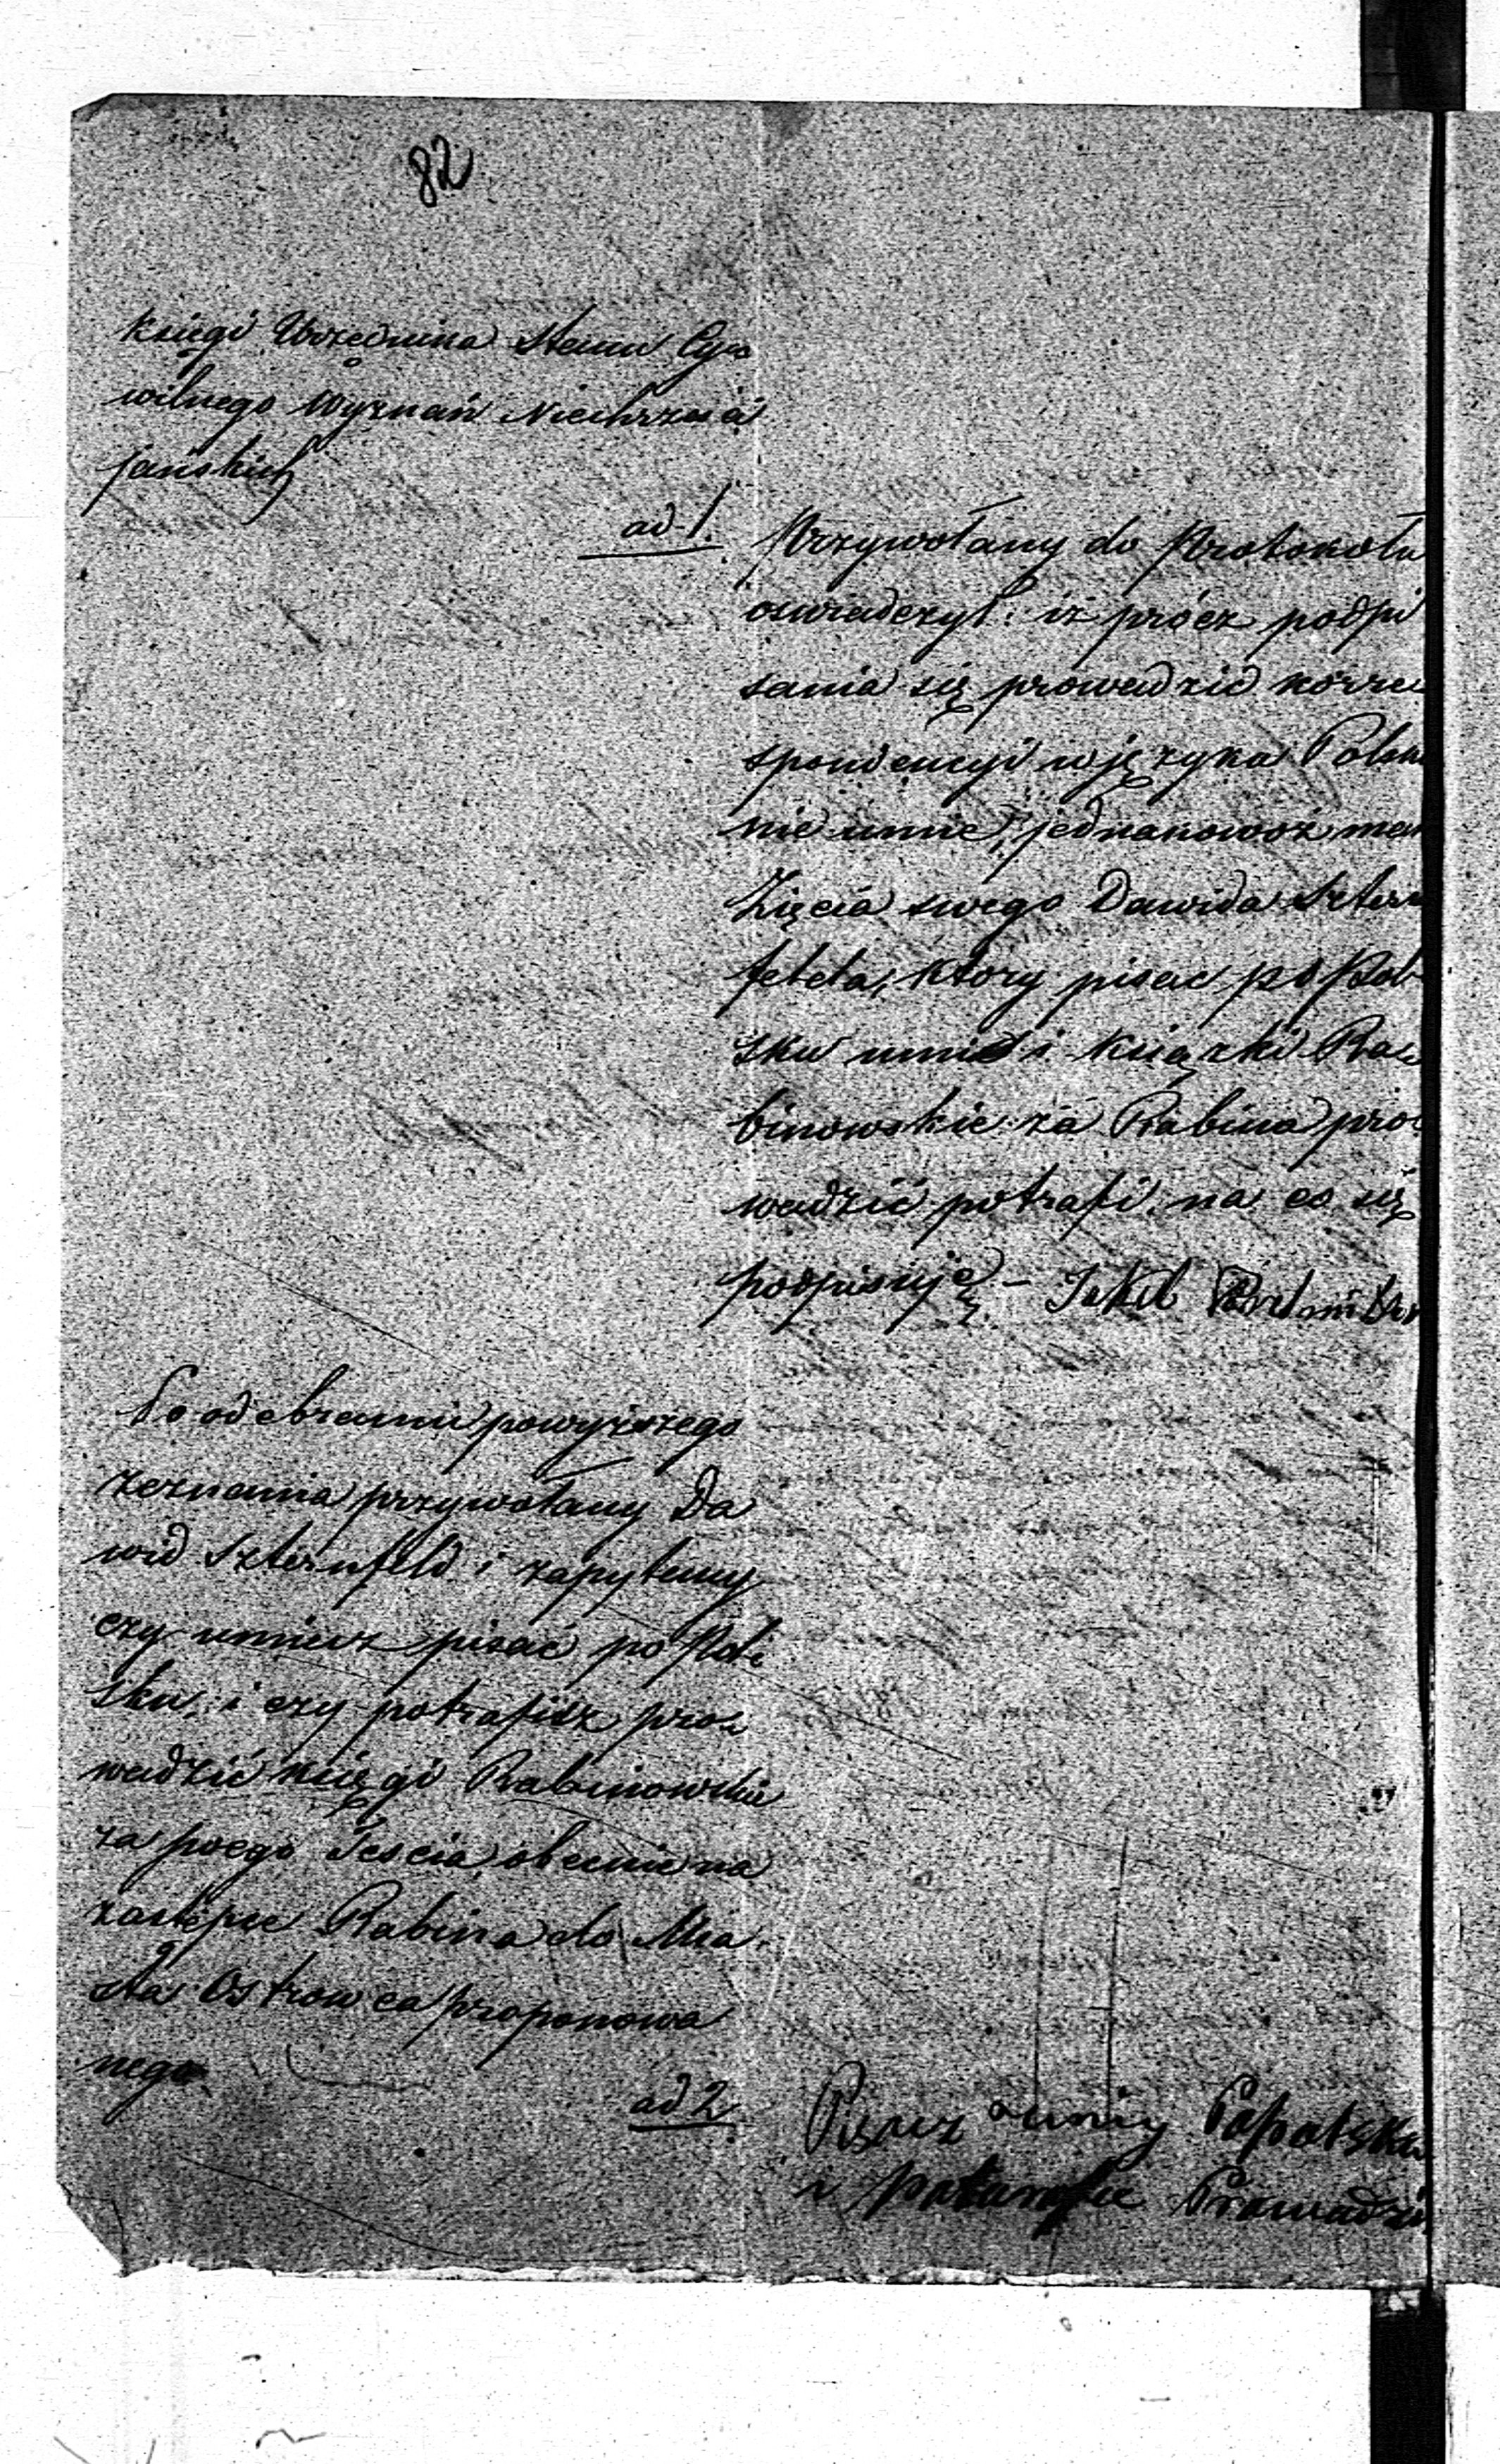 82
księgi Urzędnika Stanu Cy=
wilnego Wyznań Niechrześci
jańskich
ad 1.
Przywołany do Protokołu
oswiadczył: iż prócz podpi
sania się prowadzić korre=
spondencyi w języku Polsk
nie umie, jednakowoż ma
Zięcia swego Dawida Stern
felda, który pisać po Pol=
sku umie i książki Ra=
binowskie za Rabina pro=
wadzić potrafi, na co się
podpisuję – Jukel
Po odebraniu powyższego
zeznania przywołany Da
wid Szternfeld i zapytany
czy umiesz pisać po Pol=
sku, i czy potrafisz pro=
wadzić księgi Rabinowskie
za swego Teścia, obecnie na
zastępcę Rabina do Mia
sta Ostrowca proponowa
nego
ad 2
Pisacz umię Popolsku
i potrafie Prowadzi